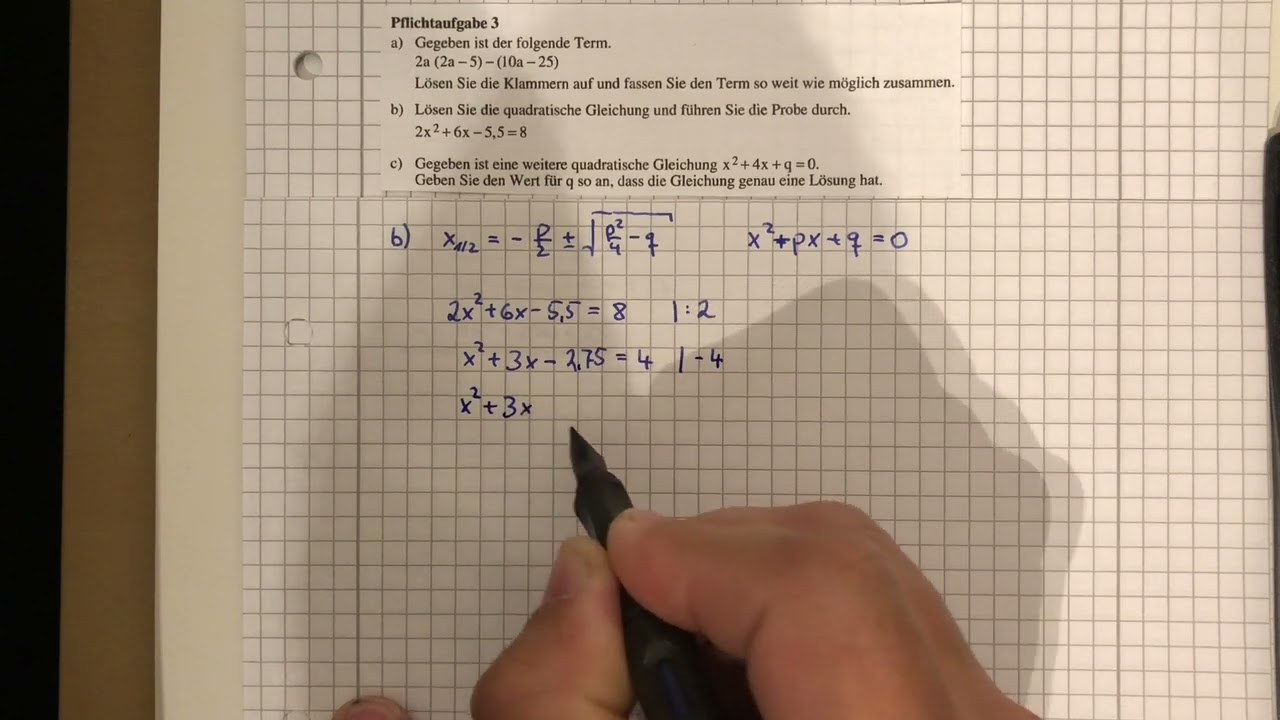 Pflichtaufgabe 3
a) Gegeben ist der folgende Term.
2a (2a – 5) – (10a – 25)
Lösen Sie die Klammern auf und fassen Sie den Term so weit wie möglich zusammen.
b) Lösen Sie die quadratische Gleichung und führen Sie die Probe durch.
2x² + 6x – 5,5 = 8
c) Gegeben ist eine weitere quadratische Gleichung x² + 4x + q = 0.
Geben Sie den Wert für q so an, dass die Gleichung genau eine Lösung hat.
b) x₁/₂ = - p/2 ± √(p²/4 - q) x² + px + q = 0
2x² + 6x - 5,5 = 8 | : 2
x² + 3x - 2,75 = 4 | - 4
x² + 3x